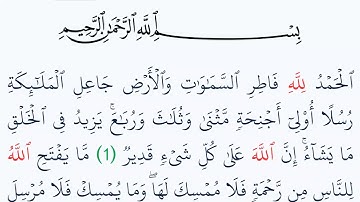 بِسْمِ ٱللَّهِ ٱلرَّحْمَٰنِ ٱلرَّحِيمِ
ٱلْحَمْدُ لِلَّهِ فَاطِرِ ٱلسَّمَٰوَٰتِ وَٱلْأَرْضِ جَاعِلِ ٱلْمَلَٰٓئِكَةِ
رُسُلًا أُو۟لِىٓ أَجْنِحَةٍ مَّثْنَىٰ وَثُلَٰثَ وَرُبَٰعَ ۚ يَزِيدُ فِى ٱلْخَلْقِ
مَا يَشَآءُ ۚ إِنَّ ٱللَّهَ عَلَىٰ كُلِّ شَىْءٍ قَدِيرٌ (1) مَّا يَفْتَحِ ٱللَّهُ
لِلنَّاسِ مِن رَّحْمَةٍ فَلَا مُمْسِكَ لَهَا ۖ وَمَا يُمْسِكْ فَلَا مُرْسِلَ